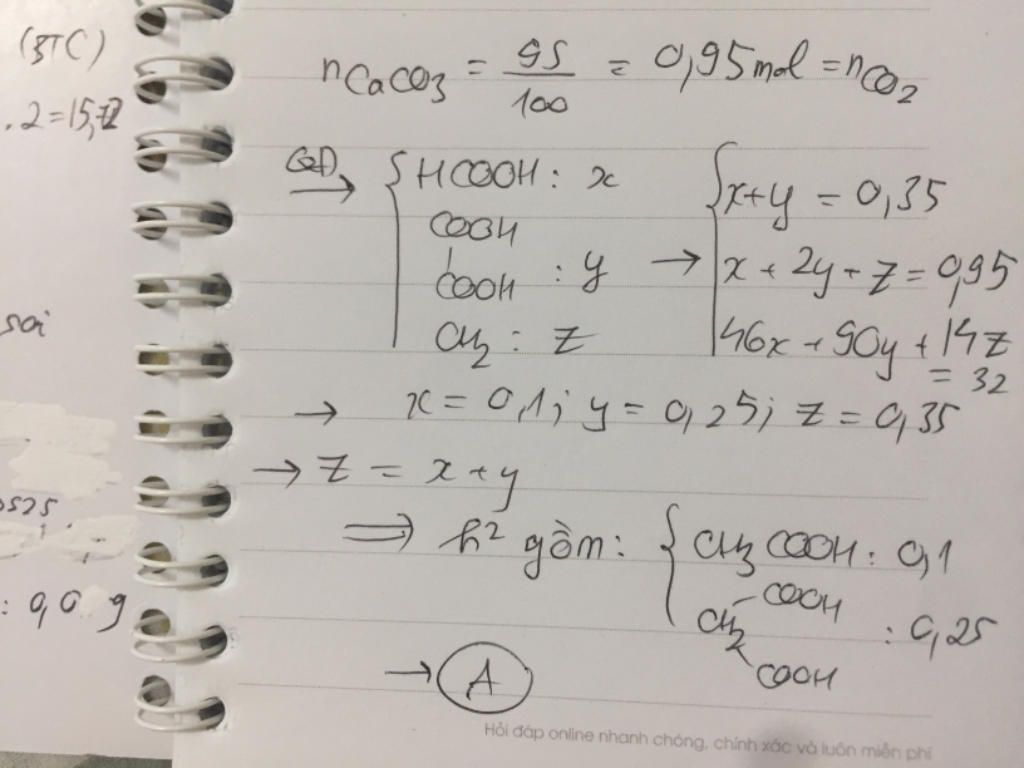 (BTC)
.2=15,72
nCaCO3 = 95/100 = 0,95mol = nCO2
QĐ → { HCOOH : x
COOH
COOH : y
CH2 : z
→ { x+y = 0,35
x + 2y + z = 0,95
46x + 90y + 14z
= 32
→ x = 0,1; y = 0,25; z = 0,35
→ z = x + y
⇒ h² gồm: { CH3COOH : 0,1
COOH
CH2 : 0,25
COOH
→ A
sai
0525
Hỏi đáp online nhanh chóng, chính xác và luôn miễn phí